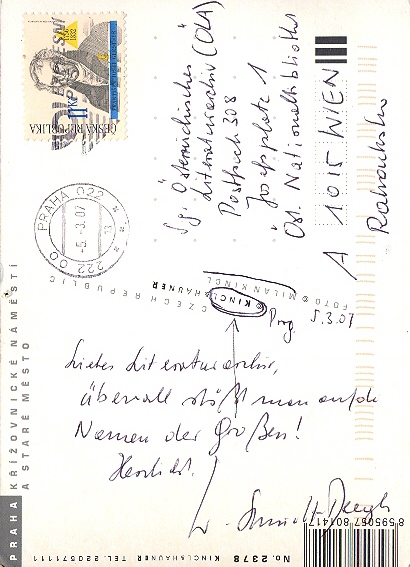 1756
1832
11 Kč
ČESKÁ REPUBLIKA
PRAHA 022
-5.-3.07
222 00
Sg. Österreichisches
Literaturarchiv (ÖLA)
Postfach 308
Josefsplatz 1
Öst. Nationalbibliothek
A 1015 WIEN
FOTO © MILAN KINCL
© KINCL & HAUNER
CZECH REPUBLIC
Prag 5.3.07
Liebes Literaturarchiv,
überall stößt man auf die
Namen der Großen!
Herzlichst.
PRAHA KŘIŽOVNICKÉ NÁMĚSTÍ
A STARÉ MĚSTO
No. 2378 KINCL & HAUNER TEL. 220571111
8 595067 801417